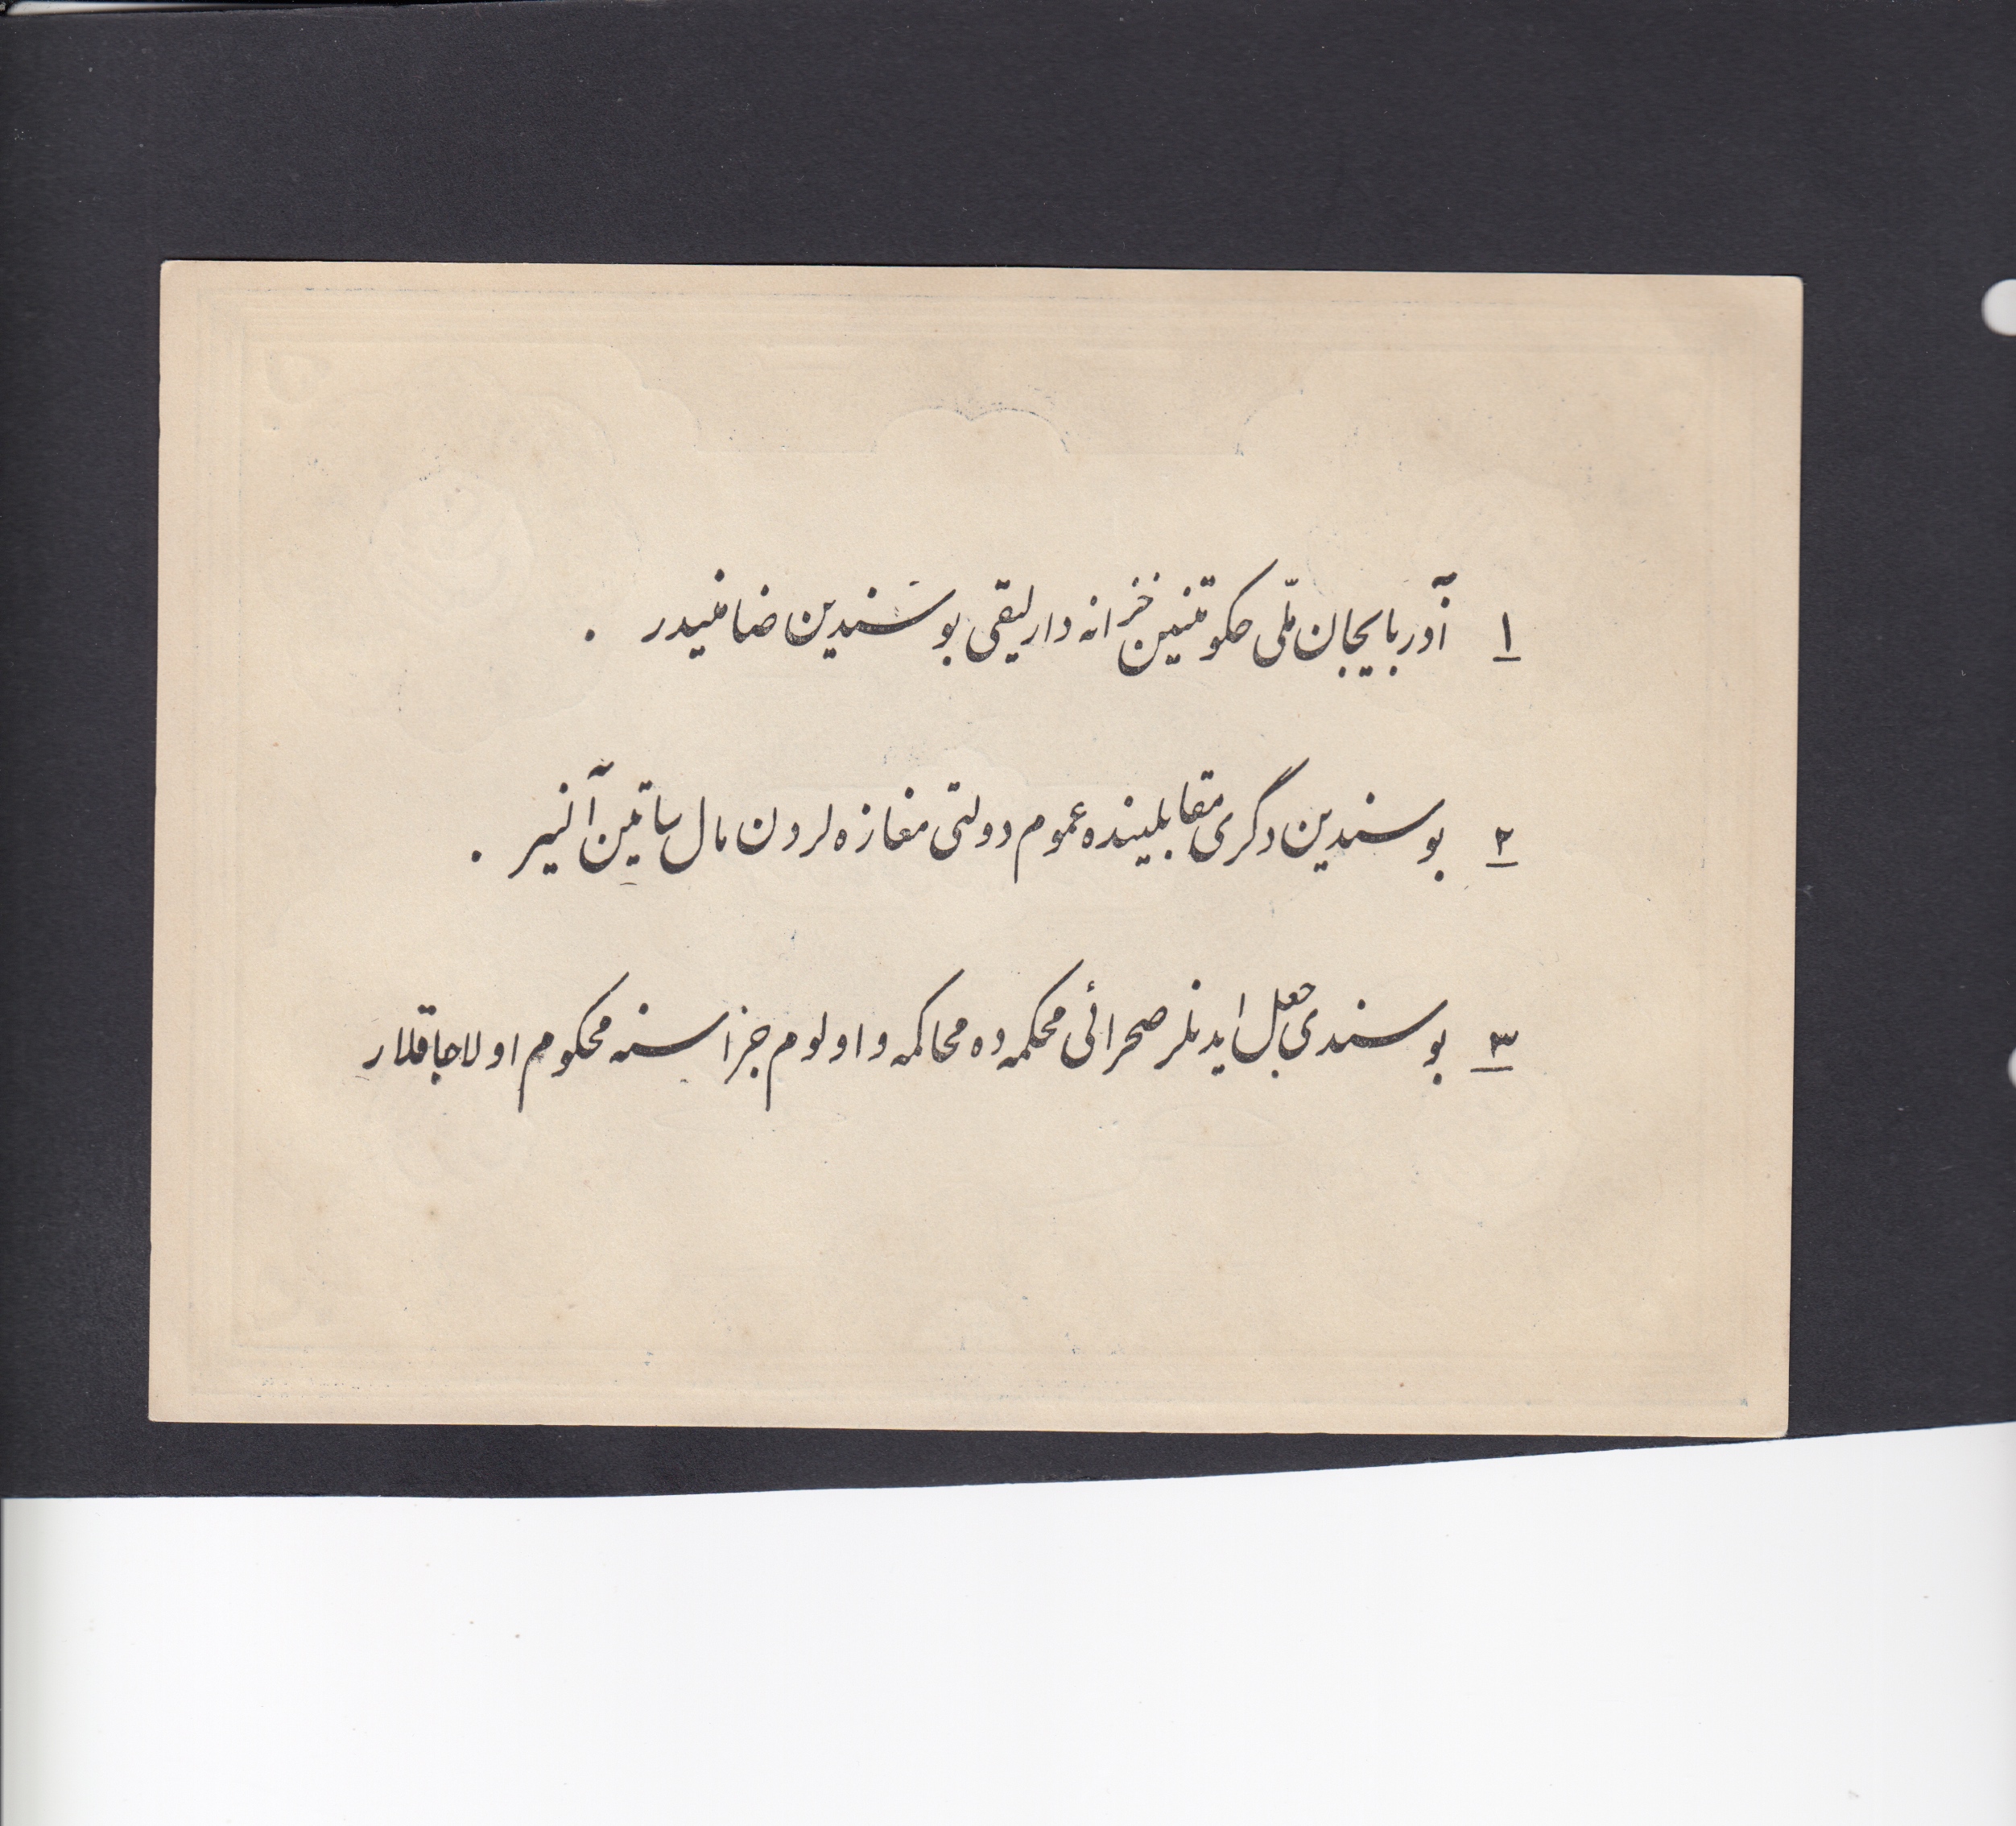 ١ آذربایجان ملّی حکومتینین خزانه دارلیقی بو سندین ضامنیدر .
٢ بو سندین دگری مقابلینده عموم دولتی مغازه لردن مال ساتین آلنیر .
٣ بو سندی جعل ایدنلر صحرائی محکمه ده محاکمه و اولوم جزاسنه محکوم اولاجاقلار